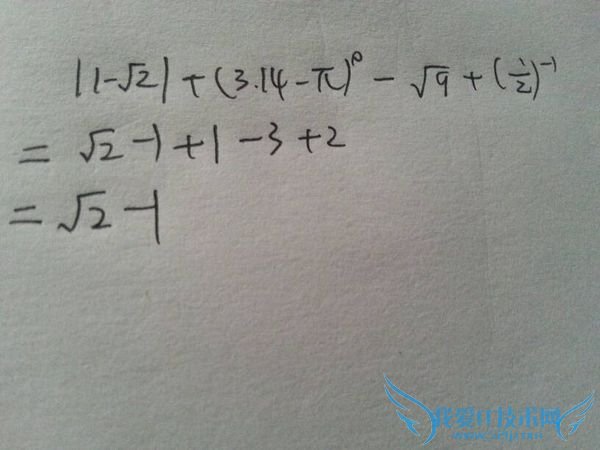 |1-√2|+(3.14-π)⁰-√9+(1/2)⁻¹
= √2-1+1-3+2
= √2-1
我爱IT技术网